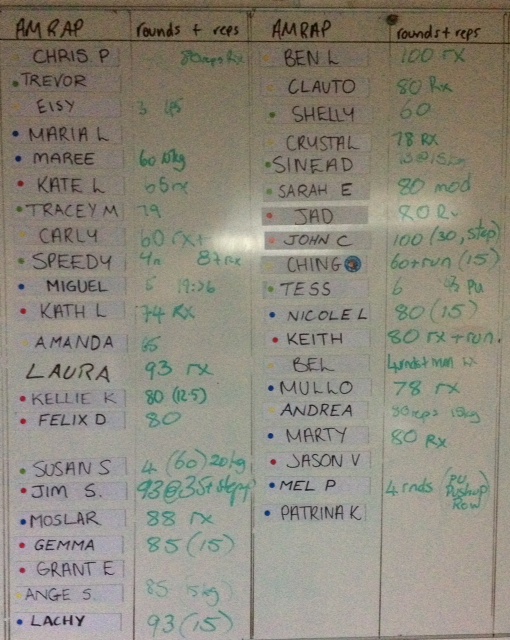 AMRAP rounds + reps
CHRIS P 80reps Rx
TREVOR
EISY 3
MARIA L
MAREE 60 15kg
KATE L 65rx
TRACEY M 79
CARLY 60 rx+
SPEEDY 4n 8+rx
MIGUEL 5
KATH L 74 RX
AMANDA 65
LAURA 93 rx
KELLIE K 80 (12.5)
FELIX D 80
SUSAN S 4 (60) 20kg
JIM S. 93@35+step
MOSLAR 88 rx
GEMMA 85 (15)
GRANT E
ANGE S. 85 15kg)
LACHY 93 (15)
AMRAP rounds + reps
BEN L 100 rx
CLAUTO 80 Rx
SHELLY 60
CRYSTAL 78 RX
SINEAD @15kg
SARAH E 80 mod
JAD 80 Rx
JOHN C 100 (30, step)
CHING 60+run (15)
TESS 6 PU
NICOLE L 80 (15)
KEITH 80 rx + run.
BEL
MULLO 78 rx
ANDREA 80reps 15kg
MARTY 80 Rx
JASON V
MEL P 4 rnds (PU
Pushup
Row)
PATRINA K